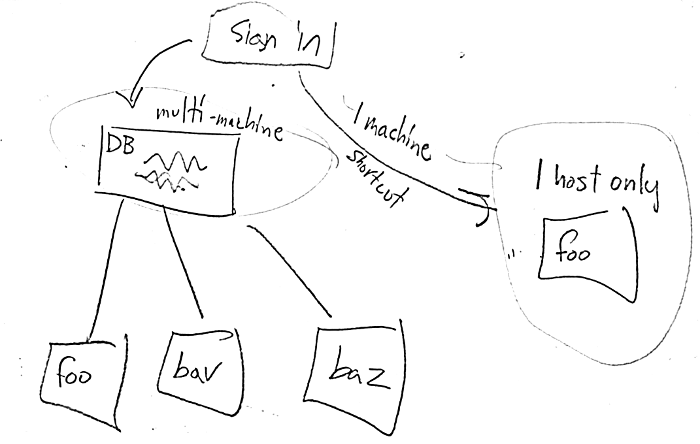 Sign in
multi-machine
1 machine
shortcut
DB
1 host only
foo
foo
bar
baz